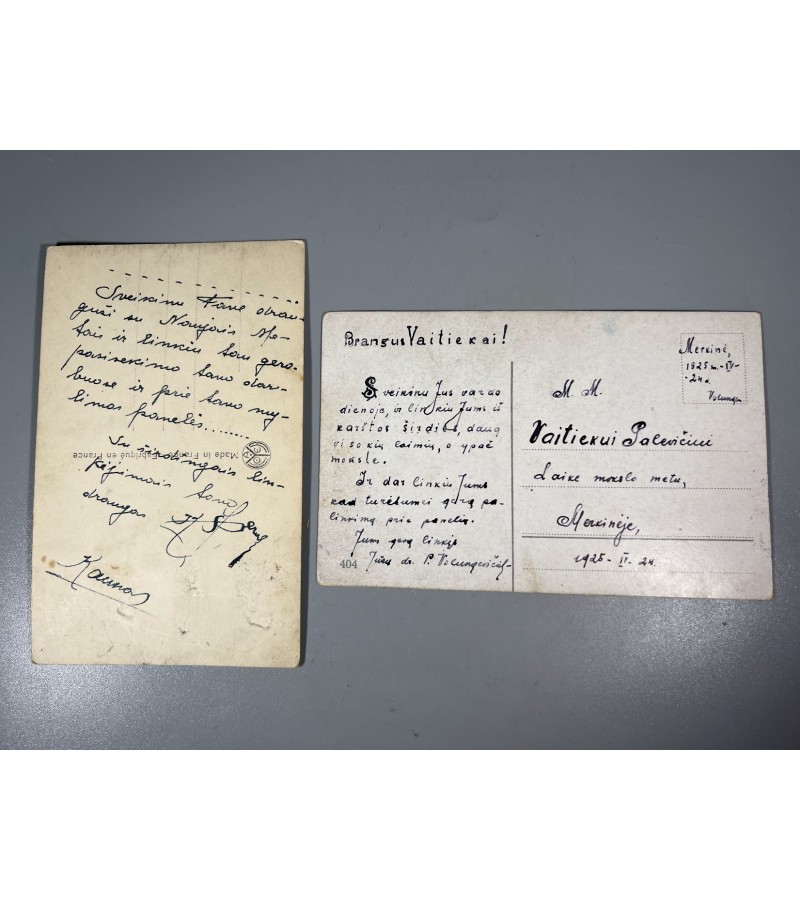 Sveikinu Tave drau-
guži su Naujais Me-
tais ir linkiu tau gero
pasisekimo tavo dar-
buose ir prie tavo my-
limos panelės........
Su širdingais lin-
kėjimais tavo
draugas
Kaunas
Made in France - Fabriqué en France
Brangus Vaitiekai!
Sveikinu Jus vardo
dienoje, ir linkiu Jums iš
karštos širdies, daug
visokių laimių, o ypač
moksle.
Ir dar linkiu Jums
kad turėtumėt gerą pa-
linkimą prie panelių.
Jums gerą linkįs
Jūsų dr. P. Volungevičius
404
Merkinė,
1925 m. IV-
-24 d.
M. M.
Vaitiekui Palevičiui
Laike mokslo metu,
Merkinėje,
1925 - IV - 24.